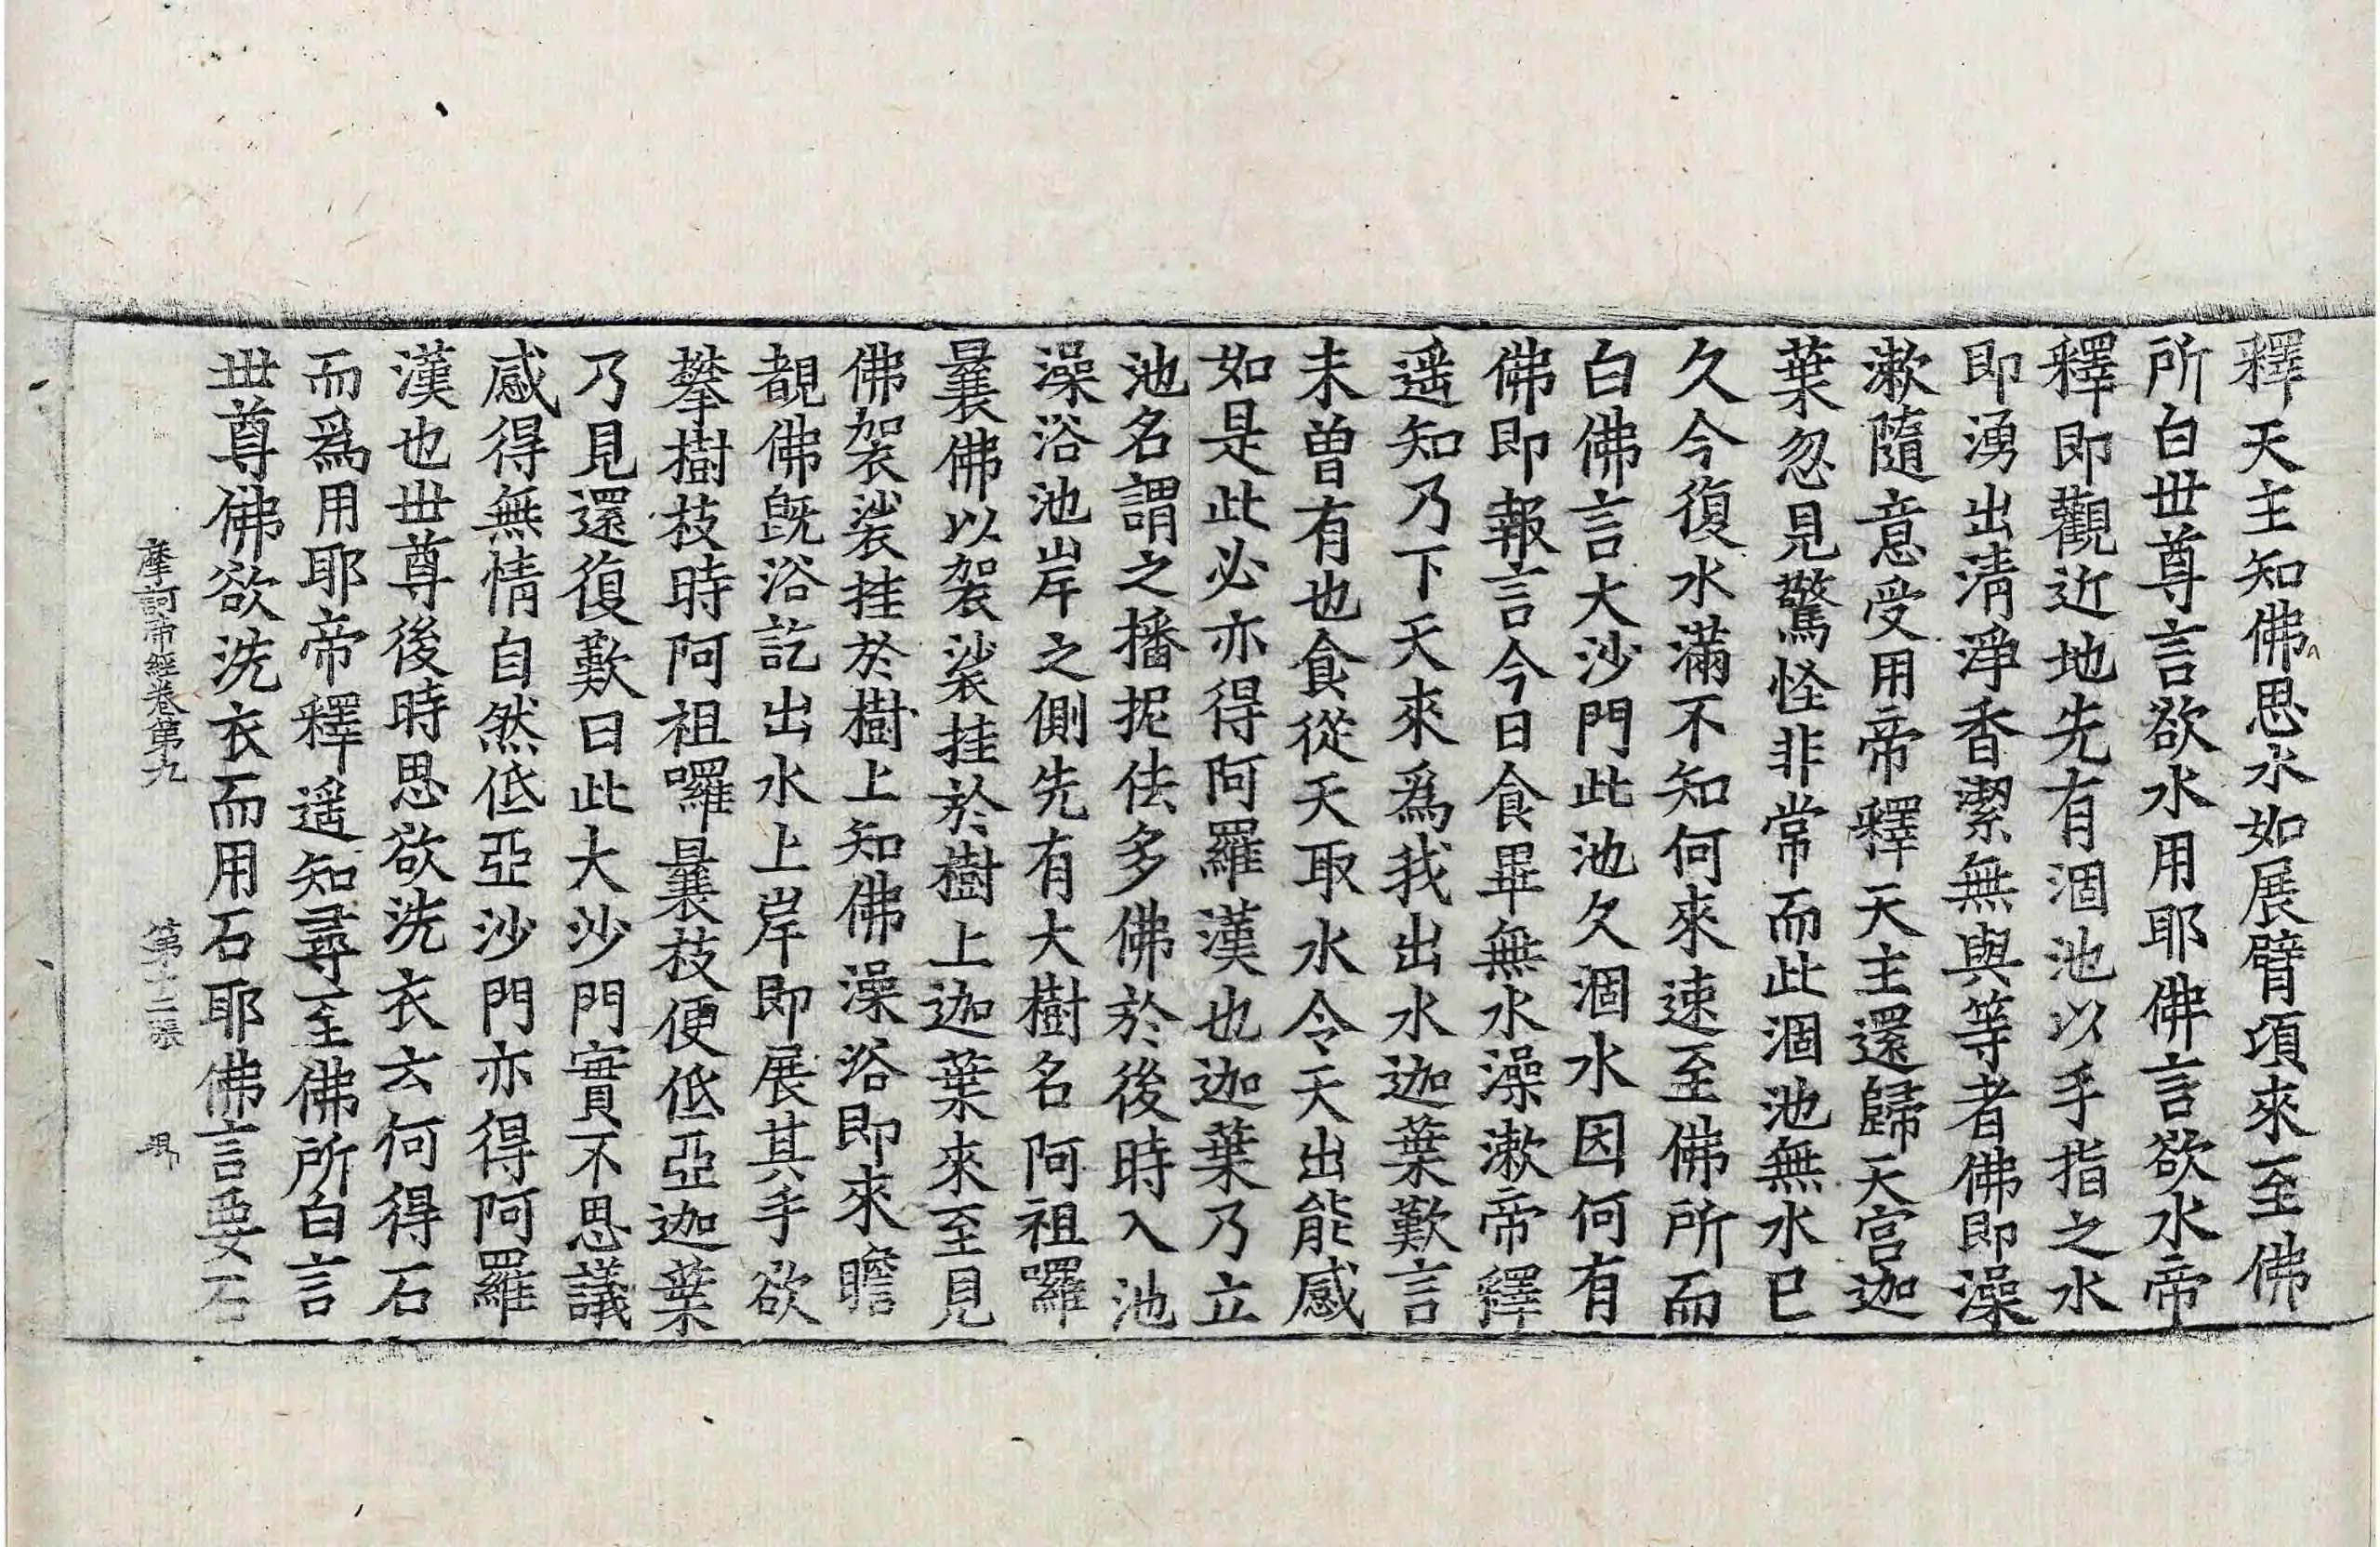 釋天主知佛思水如展臂項來至佛
所白世尊言欲水用耶佛言欲水帝
釋即觀近地先有涸池以手指之水
即湧出清淨香潔無與等者佛即澡
漱隨意受用帝釋天主還歸天宮迦
葉忽見驚怪非常而此涸池無水已
久今復水滿不知何來速至佛所而
白佛言大沙門此池久涸水因何有
佛即報言今日食畢無水澡漱帝釋
遥知乃下天來爲我出水迦葉歎言
未曾有也食從天取水令天出能感
如是此必亦得阿羅漢也迦葉乃立
池名謂之播抳佉多佛於後時入池
澡浴池岸之側先有大樹名阿祖囉
曩佛以袈裟挂於樹上迦葉來至見
佛袈裟挂於樹上知佛澡浴即來瞻
覩佛旣浴訖出水上岸即展其手欲
攀樹枝時阿祖囉曩枝便低亞迦葉
乃見還復歎曰此大沙門實不思議
感得無情自然低亞沙門亦得阿羅
漢也世尊後時思欲洗衣云何得石
而爲用耶帝釋遥知尋至佛所白言
世尊佛欲洗衣而用石耶佛言要石
摩訶帝經卷第九 第十二張